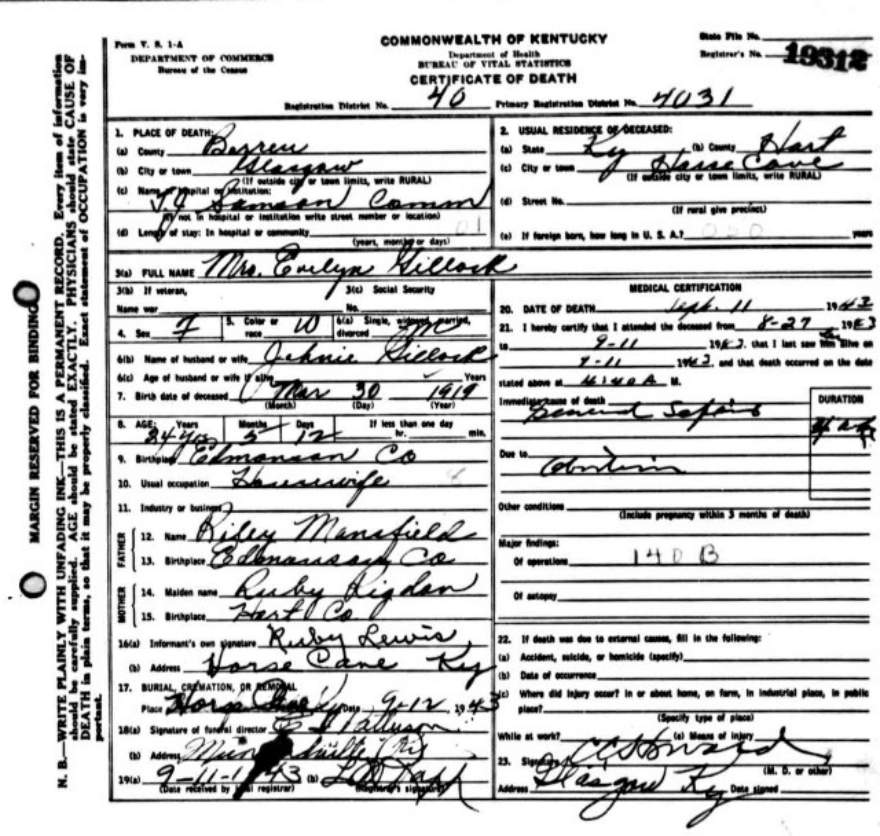 Form V. S. 1-A
DEPARTMENT OF COMMERCE
Bureau of the Census
COMMONWEALTH OF KENTUCKY
Department of Health
BUREAU OF VITAL STATISTICS
CERTIFICATE OF DEATH
State File No.
Registrar's No. 19312
Registration District No. 40 Primary Registration District No. 4031
MARGIN RESERVED FOR BINDING
N. B.—WRITE PLAINLY WITH UNFADING INK—THIS IS A PERMANENT RECORD. Every item of information
should be carefully supplied. AGE should be stated EXACTLY. PHYSICIANS should state CAUSE OF
DEATH in plain terms, so that it may be properly classified. Exact statement of OCCUPATION is very im-
portant.
1. PLACE OF DEATH:
(a) County Barren
(b) City or town Glasgow
(If outside city or town limits, write RURAL)
(c) Name of hospital or institution:
T J Samson Comm
(If not in hospital or institution write street number or location)
(d) Length of stay: In hospital or community 01
(years, months or days)
2. USUAL RESIDENCE OF DECEASED:
(a) State Ky (b) County Hart
(c) City or town Horse Cave
(If outside city or town limits, write RURAL)
(d) Street No.
(If rural give precinct)
(e) If foreign born, how long in U. S. A.? 000 years
3(a) FULL NAME Mrs. Evelyn Gillock
3(b) If veteran,
Name war
3(c) Social Security
No.
4. Sex F 5. Color or race W 6(a) Single, widowed, married, divorced M
6(b) Name of husband or wife Johnie Gillock
6(c) Age of husband or wife if alive Years
7. Birth date of deceased Mar 30 1919
(Month) (Day) (Year)
8. AGE: Years Months Days If less than one day
24 yrs 5 12 hr. min.
9. Birthplace Edmonson Co
10. Usual occupation Housewife
11. Industry or business
FATHER
12. Name Riley Mansfield
13. Birthplace Edmonson Co
MOTHER
14. Maiden name Ruby Rigdon
15. Birthplace Hart Co
16(a) Informant's own signature Ruby Lewis
(b) Address Horse Cave Ky
17. BURIAL, CREMATION, OR REMOVAL
Place Horse Cave Ky Date 9-12 1943
18(a) Signature of funeral director
(b) Address Munfordville Ky
19(a) 9-11-1943 (b)
(Date received by local registrar) (Registrar's signature)
MEDICAL CERTIFICATION
20. DATE OF DEATH Sept. 11 1943
21. I hereby certify that I attended the deceased from 8-27 1943
to 9-11 1943, that I last saw him alive on
9-11 1943, and that death occurred on the date
stated above at 4:40 A M.
Immediate cause of death
General Sepsis
DURATION
Due to
Abortion
Other conditions
(Include pregnancy within 3 months of death)
Major findings:
Of operations 140 B
Of autopsy
22. If death was due to external causes, fill in the following:
(a) Accident, suicide, or homicide (specify)
(b) Date of occurrence
(c) Where did injury occur? In or about home, on farm, in industrial place, in public
place?
(Specify type of place)
While at work? (e) Means of injury
23. Signature C C Howard
(M. D. or other)
Address Glasgow Ky Date signed